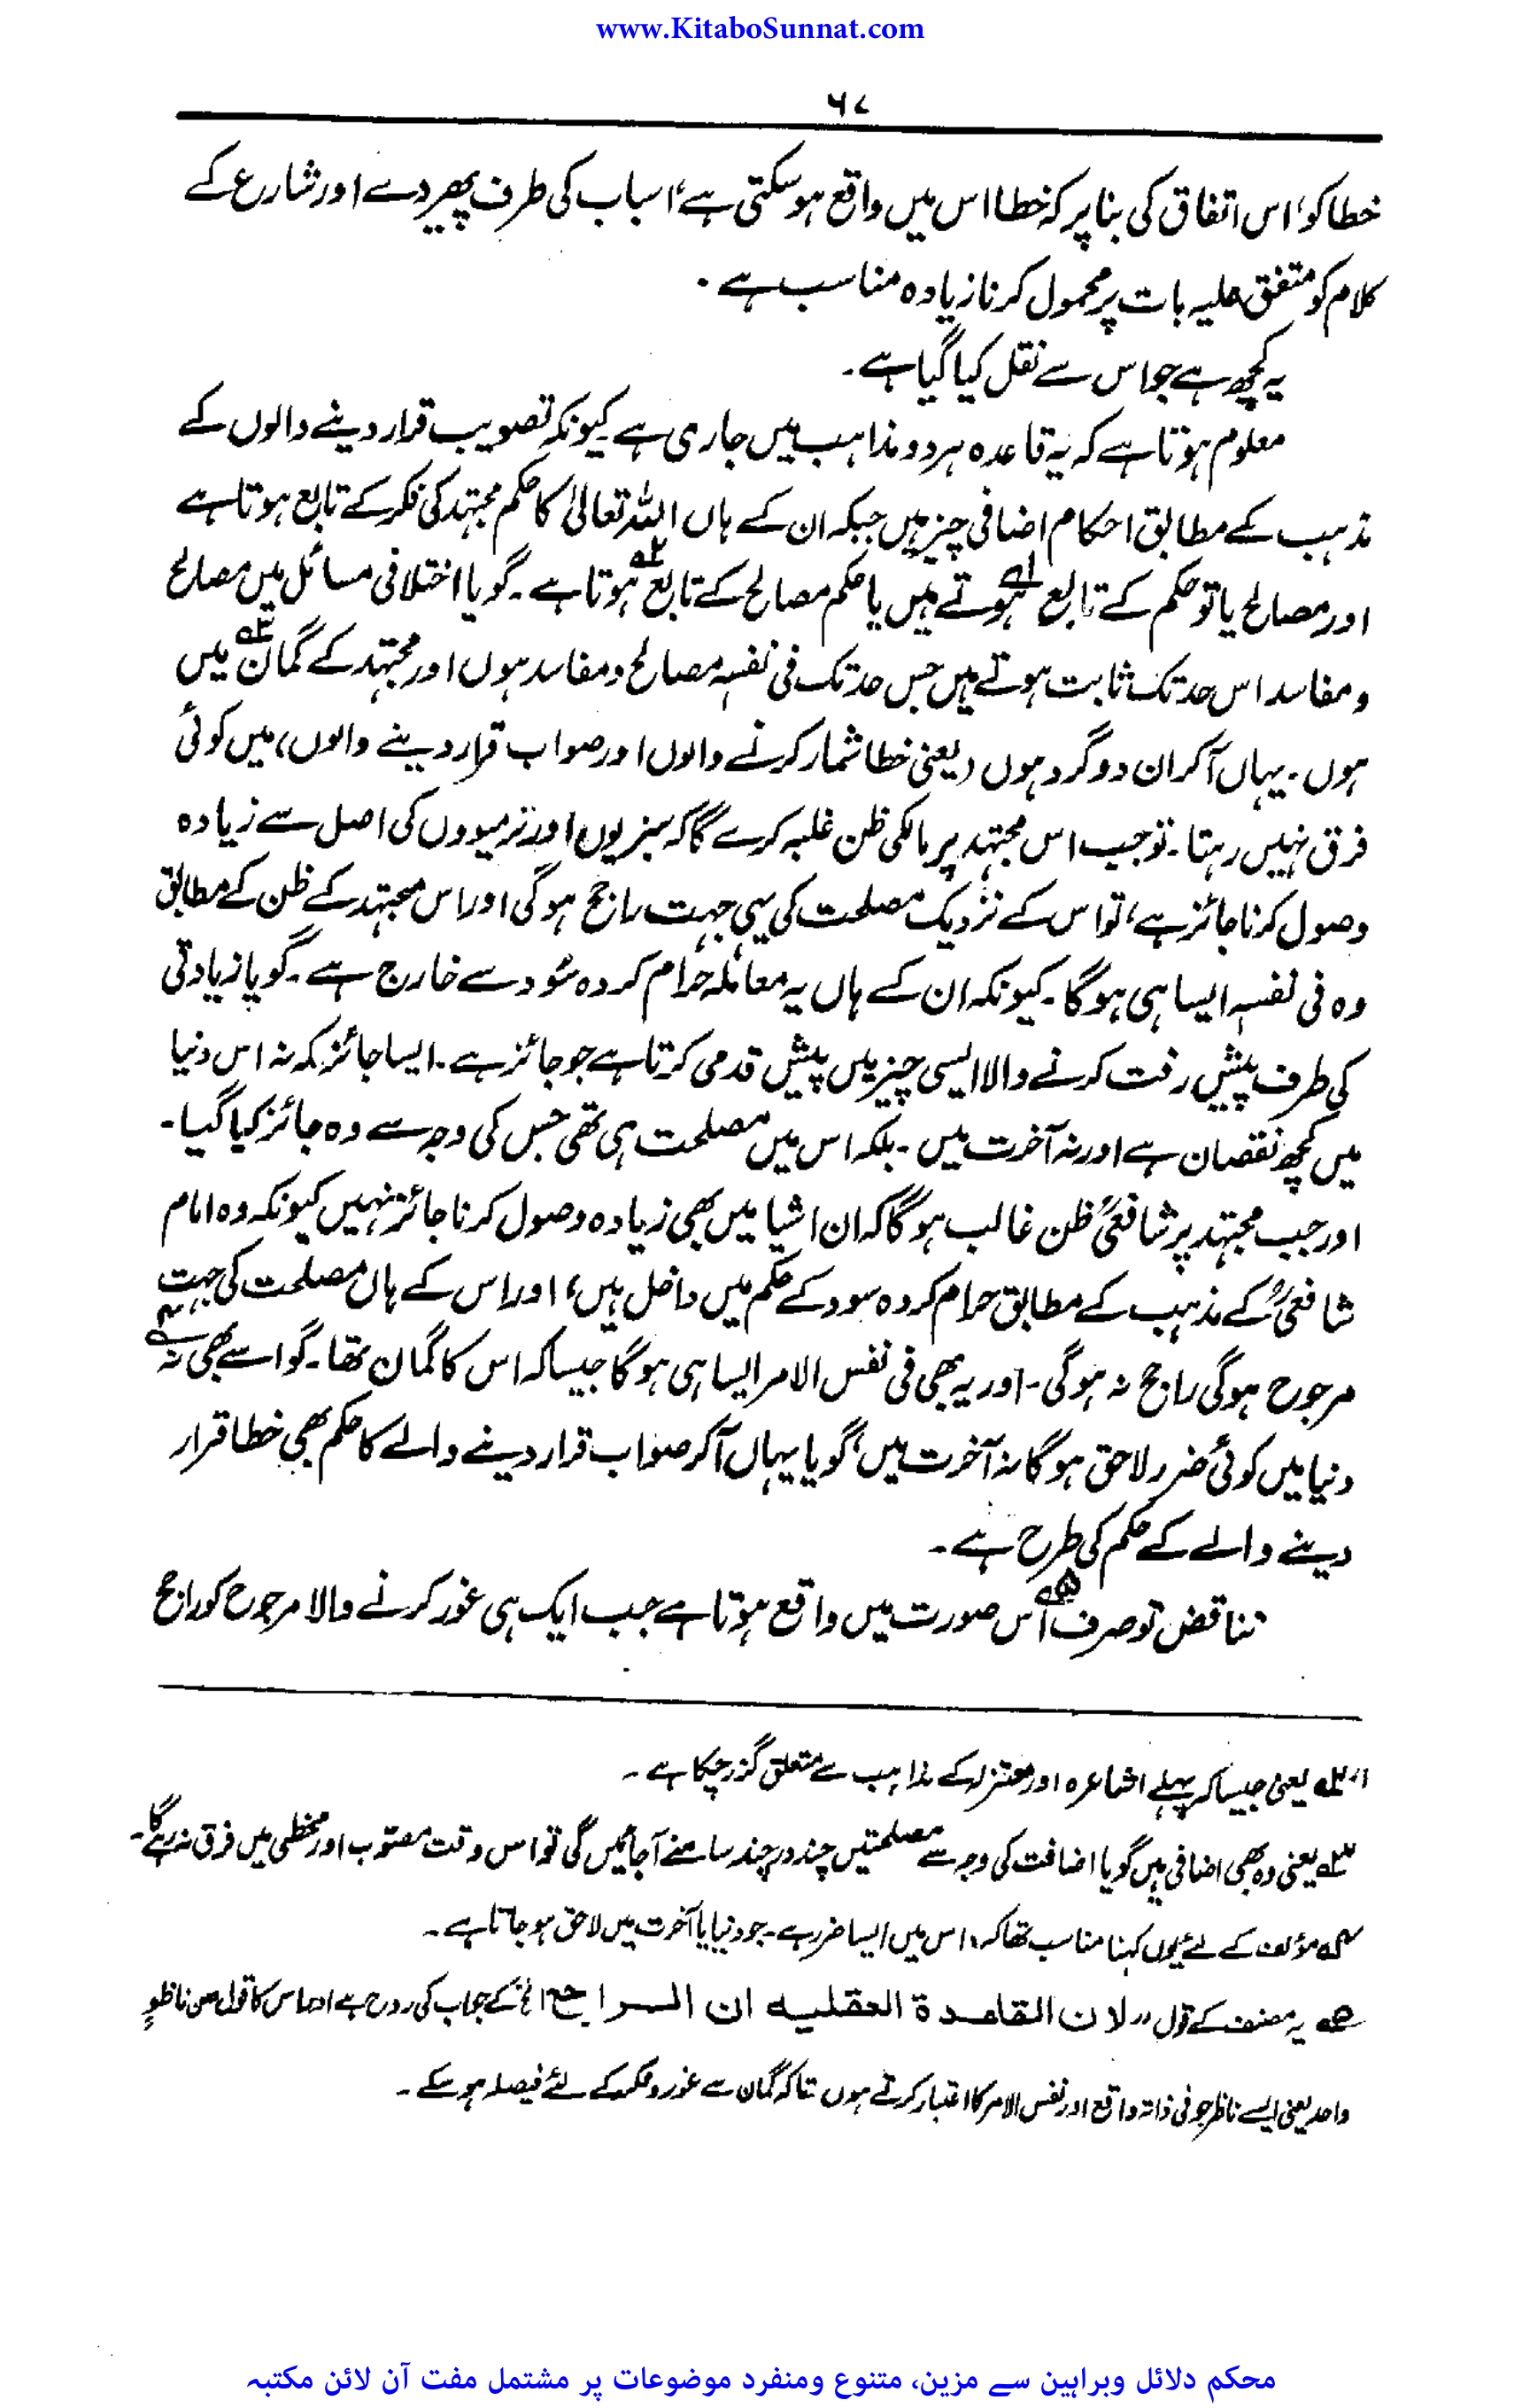 www.KitaboSunnat.com
۶۷
خطا کو، اس اتفاق کی بنا پر کہ خطا اس میں واقع ہو سکتی ہے، اسباب کی طرف پھیر دے اور شارع کے
کلام کو متفق علیہ بات پر محمول کرنا زیادہ مناسب ہے۔
یہ کچھ ہے جو اس سے نقل کیا گیا ہے۔
معلوم ہوتا ہے کہ یہ قاعدہ ہر دو مذاہب میں جاری ہے۔ کیونکہ تصویب قرار دینے والوں کے
مذہب کے مطابق احکام اضافی چیز ہیں جبکہ ان کے ہاں اللہ تعالیٰ کا حکم مجتہد کی فکر کے تابع ہوتا ہے
اور مصالح یا تو حکم کے تابع ہوتے۱؎ ہیں یا حکم مصالح کے تابع۲؎ ہوتا ہے۔ گویا اختلافی مسائل میں مصالح
و مفاسد اس حد تک ثابت ہوتے ہیں جس حد تک فی نفسہٖ مصالح و مفاسد ہوں اور مجتہد کے گمان۳؎ میں
ہوں۔ یہاں آکر ان دو گروہوں (یعنی خطا شمار کرنے والوں اور صواب قرار دینے والوں) میں کوئی
فرق نہیں رہتا۔ تو جب اس مجتہد پر مالکی ظن غلبہ کرے گا کہ سبزیوں اور تر میووں کی اصل سے زیادہ
وصول کرنا جائز ہے، تو اس کے نزدیک مصلحت کی یہی جہت راجح ہوگی اور اس مجتہد کے ظن کے مطابق
وہ فی نفسہٖ ایسا ہی ہوگا۔ کیونکہ ان کے ہاں یہ معاملہ حرام کردہ سُود سے خارج ہے۔ گویا زیادتی
کی طرف پیش رفت کرنے والا ایسی چیز میں پیش قدمی کرتا ہے جو جائز ہے۔ ایسا جائز کہ نہ اس دنیا
میں کچھ نقصان ہے اور نہ آخرت میں۔ بلکہ اس میں مصلحت ہی تھی جس کی وجہ سے وہ جائز کیا گیا۔
اور جب مجتہد پر شافعیؒ ظن غالب ہوگا کہ ان اشیا میں بھی زیادہ وصول کرنا جائز نہیں کیونکہ وہ امام
شافعیؒ کے مذہب کے مطابق حرام کردہ سود کے حکم میں داخل ہیں، اور اس کے ہاں مصلحت کی جہت
مرجوح ہوگی راجح نہ ہوگی۔ اور یہ بھی فی نفس الامر ایسا ہی ہوگا جیسا کہ اس کا گمان تھا۔ گو اسے بھی نہ۴؎
دنیا میں کوئی ضرر لاحق ہوگا نہ آخرت میں، گویا یہاں آکر صواب قرار دینے والے کا حکم بھی خطا قرار
دینے والے کے حکم کی طرح ہے۔
تناقض تو صرف۵؎ اُس صورت میں واقع ہوتا ہے جب ایک ہی غور کرنے والا مرجوح کو راجح
۱، ۲؎ یعنی جیسا کہ پہلے اشاعرہ اور معتزلہ کے مذاہب سے متعلق گزر چکا ہے۔
۳؎ یعنی وہ بھی اضافی ہیں گویا اضافت کی وجہ سے مصلحتیں چند در چند سامنے آجائیں گی تو اس وقت مصوّب اور مخطی میں فرق نہ رہے گا۔
۴؎ مؤلف کے لئے یوں کہنا مناسب تھا کہ، اس میں ایسا ضرر ہے۔ جو دنیا یا آخرت میں لاحق ہو جاتا ہے۔
۵؎ یہ مصنف کے قول "لان القاعدة العقلیه ان الراجح الخ" کے جواب کی روح ہے اور اس کا قول من ناظرٍ
واحد یعنی ایسے ناظر جو فی ذاتہ واقع اور نفس الامر کا اعتبار کرتے ہوں تاکہ گمان سے غور و فکر کے لئے فیصلہ ہو سکے۔
محکم دلائل وبراہین سے مزین، متنوع ومنفرد موضوعات پر مشتمل مفت آن لائن مکتبہ